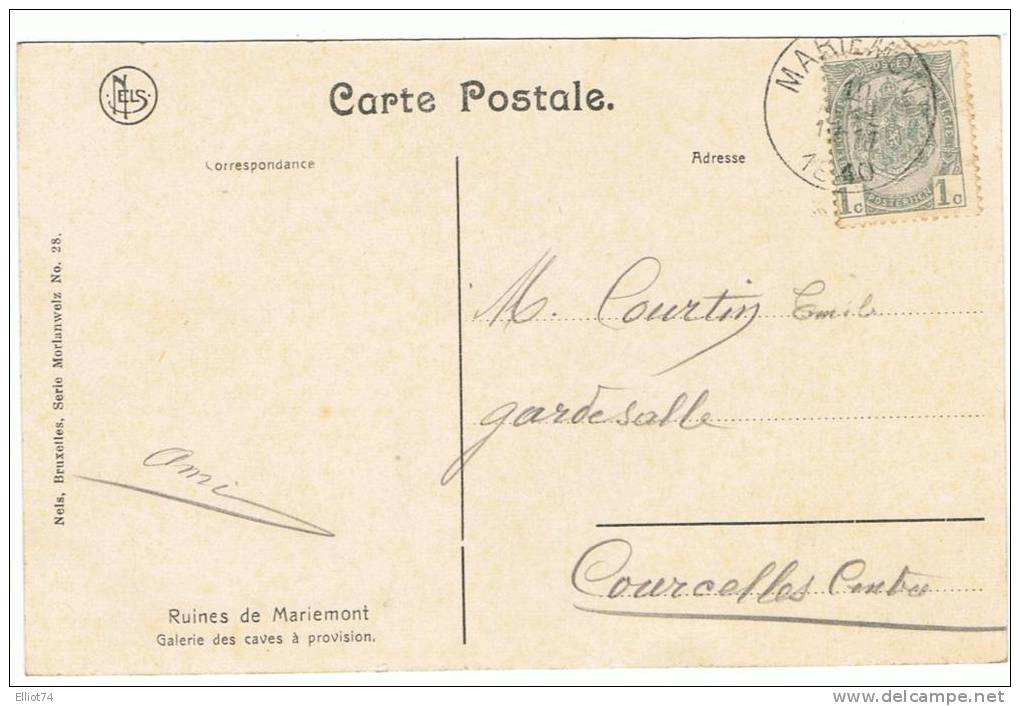 NELS
Carte Postale.
MARIEMONT
POSTES
POSTERIJEN
1c 1c
Correspondance
Adresse
Nels, Bruxelles, Serie Morlanwelz No. 28.
M. Courtin Emile
gardesalle
Ami
Courcelles Centre
Ruines de Mariemont
Galerie des caves à provision.
Elliot74
www.delcampe.net